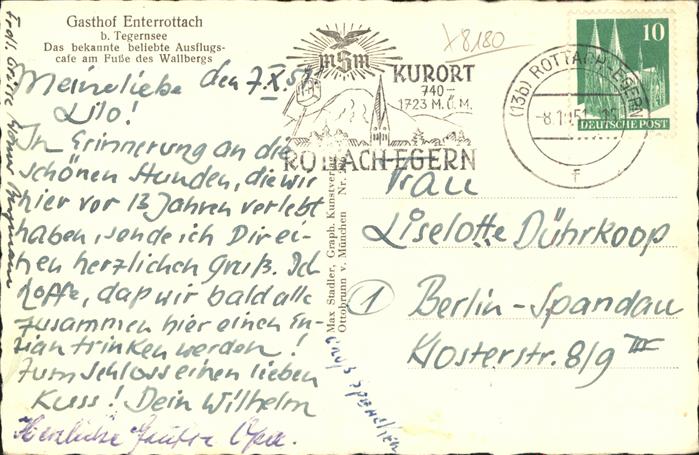 Gasthof Enterrottach
b. Tegernsee
Das bekannte beliebte Ausflugs-
cafe am Fuße des Wallbergs
Meine liebe den 7.X.51
Lilo!
In Erinnerung an die
schönen Stunden, die wir
hier vor 13 Jahren verlebt
haben, sende ich Dir ei-
nen herzlichen Gruß. Ich
hoffe, daß wir bald alle
zusammen hier einen En-
zian trinken werden!
Zum Schluss einen lieben
Kuss! Dein Wilhelm
Herzliche Opa.
Max Stadler, Graph. Kunstverlag
Ottobrunn v. München Nr.
x8180
KURORT
740-
1723 M.Ü.M.
ROTTACH-EGERN
(13b) ROTTACH-EGERN
f
10
DEUTSCHE POST
Frau
Liselotte Dührkoop
1 Berlin-Spandau
Klosterstr. 8/9 III